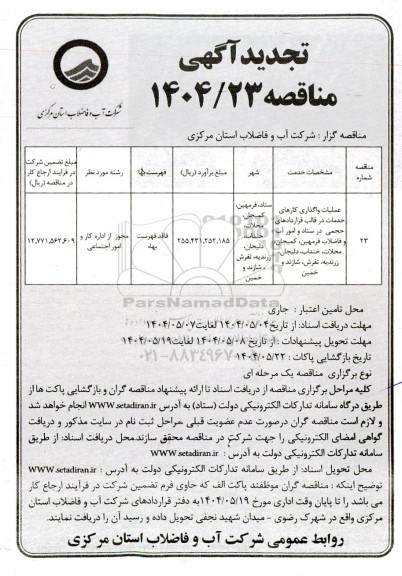 تجدید آگهی
مناقصه ۱۴۰۴/۲۳
شرکت آب و فاضلاب استان مرکزی
مناقصه گزار : شرکت آب و فاضلاب استان مرکزی
مناقصه شماره
مشخصات خدمت
شهر
مبلغ برآورد (ریال)
فهرست بها
رشته مورد نظر
مبلغ تضمین شرکت در فرایند ارجاع کار در مناقصه (ریال)
۲۳
عملیات واگذاری کارهای خدمات در قالب قراردادهای حجمی در ستاد و امور آب و فاضلاب فرمهین، کمیجان، محلات، خنداب، دلیجان، زرندیه، تفرش، شازند و خمین
ستاد، فرمهین، کمیجان، محلات، خنداب، دلیجان، زرندیه، تفرش، شازند و خمین
۲۵۵,۴۳۱,۲۵۲,۱۸۵
فاقد فهرست بهاء
مجوز از اداره کار و امور اجتماعی
۱۲,۷۷۱,۵۶۲,۶۰۹
ParsNamadData
۰۲۱-۸۸۳۴۹۶۷۰
محل تامین اعتبار : جاری
مهلت دریافت اسناد: از تاریخ ۱۴۰۴/۰۵/۰۴ لغایت ۱۴۰۴/۰۵/۰۷
مهلت تحویل پیشنهادات : از تاریخ ۱۴۰۴/۰۵/۰۸ لغایت ۱۴۰۴/۰۵/۱۹
تاریخ بازگشایی پاکات : ۱۴۰۴/۰۵/۲۲
نوع برگزاری مناقصه یک مرحله ای
کلیه مراحل برگزاری مناقصه از دریافت اسناد تا ارائه پیشنهاد مناقصه گران و بازگشایی پاکت ها از
طریق درگاه سامانه تدارکات الکترونیکی دولت (ستاد) به آدرس www.setadiran.ir انجام خواهد شد
و لازم است مناقصه گران درصورت عدم عضویت قبلی ،مراحل ثبت نام در سایت مذکور و دریافت
گواهی امضای الکترونیکی را جهت شرکت در مناقصه محقق سازند.محل دریافت اسناد: از طریق
سامانه تدارکات الکترونیکی دولت به آدرس : www.setadiran.ir
محل تحویل اسناد: از طریق سامانه تدارکات الکترونیکی دولت به آدرس : www.setadiran.ir
توضیح اینکه : مناقصه گران موظفند پاکت الف که حاوی فرم تضمین شرکت در فرآیند ارجاع کار
می باشد را تا پایان وقت اداری مورخ ۱۴۰۴/۰۵/۱۹ به دفتر قراردادهای شرکت آب و فاضلاب استان
مرکزی واقع در شهرک رضوی - میدان شهید نجفی تحویل داده و رسید آن را دریافت نمایند.
روابط عمومی شرکت آب و فاضلاب استان مرکزی